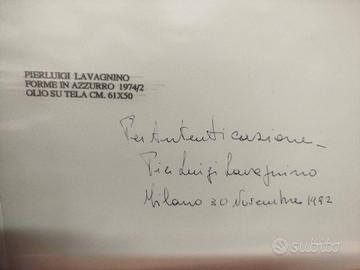 PIERLUIGI LAVAGNINO
FORME IN AZZURRO 1974/2
OLIO SU TELA CM. 61X50
Per Autenticazione_
Pier Luigi Lavagnino
Milano 30 Novembre 1992
subito